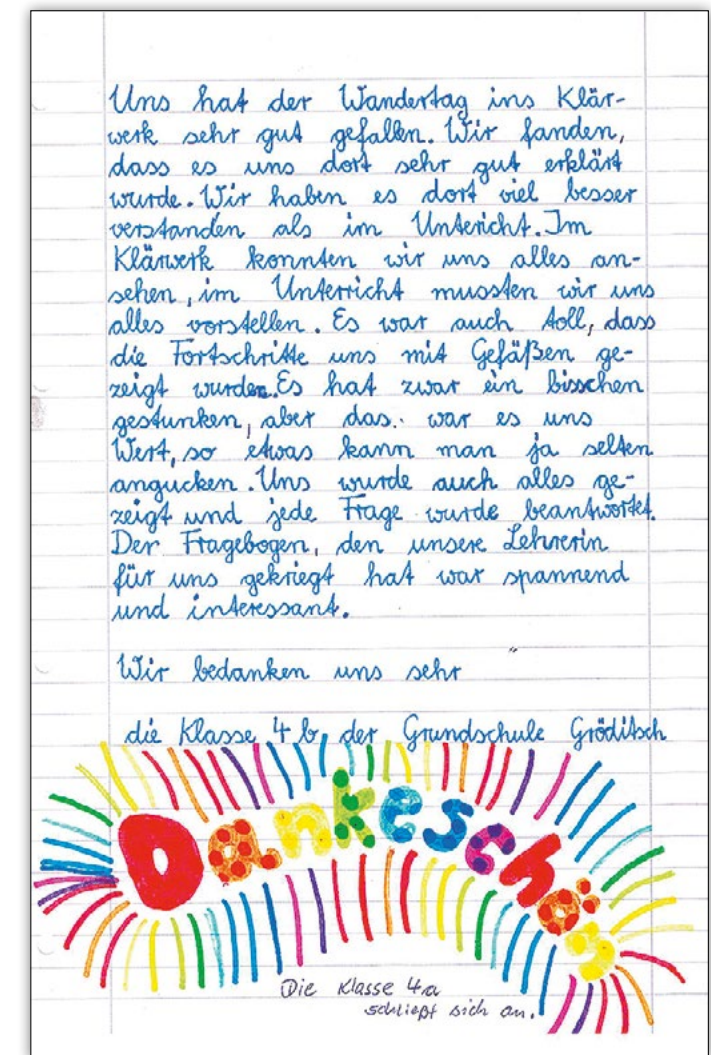 Uns hat der Wandertag ins Klär-
werk sehr gut gefallen. Wir fanden,
dass es uns dort sehr gut erklärt
wurde. Wir haben es dort viel besser
verstanden als im Unterricht. Im
Klärwerk konnten wir uns alles an-
sehen, im Unterricht mussten wir uns
alles vorstellen. Es war auch toll, dass
die Fortschritte uns mit Gefäßen ge-
zeigt wurden. Es hat zwar ein bisschen
gestunken, aber das war es uns
Wert, so etwas kann man ja selten
angucken. Uns wurde auch alles ge-
zeigt und jede Frage wurde beantwortet.
Der Fragebogen, den unsere Lehrerin
für uns gekriegt hat war spannend
und interessant.
Wir bedanken uns sehr
die Klasse 4b der Grundschule Gröditsch
Dankeschön
Die Klasse 4a
schließt sich an.